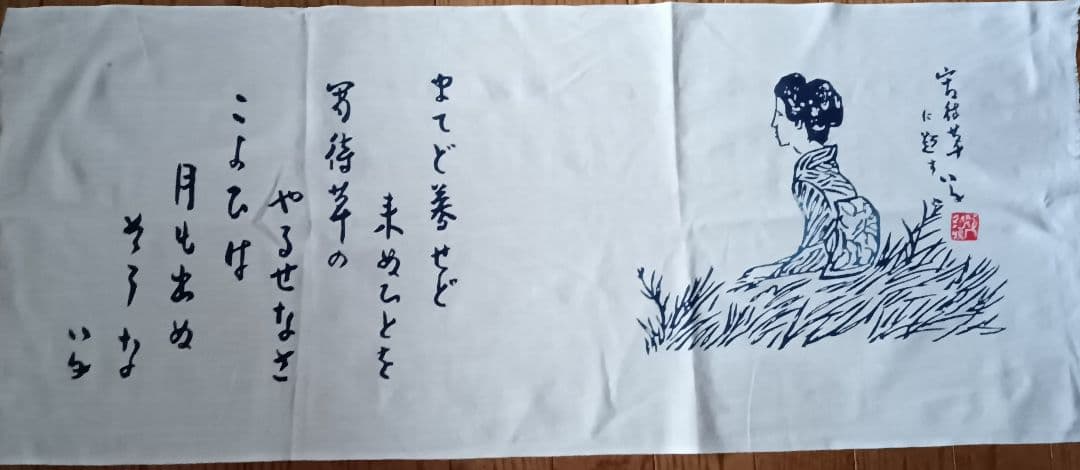 宵待草
に題す
まてど暮せど
来ぬひとを
宵待草の
やるせなさ
こよひは
月も出ぬ
そうな